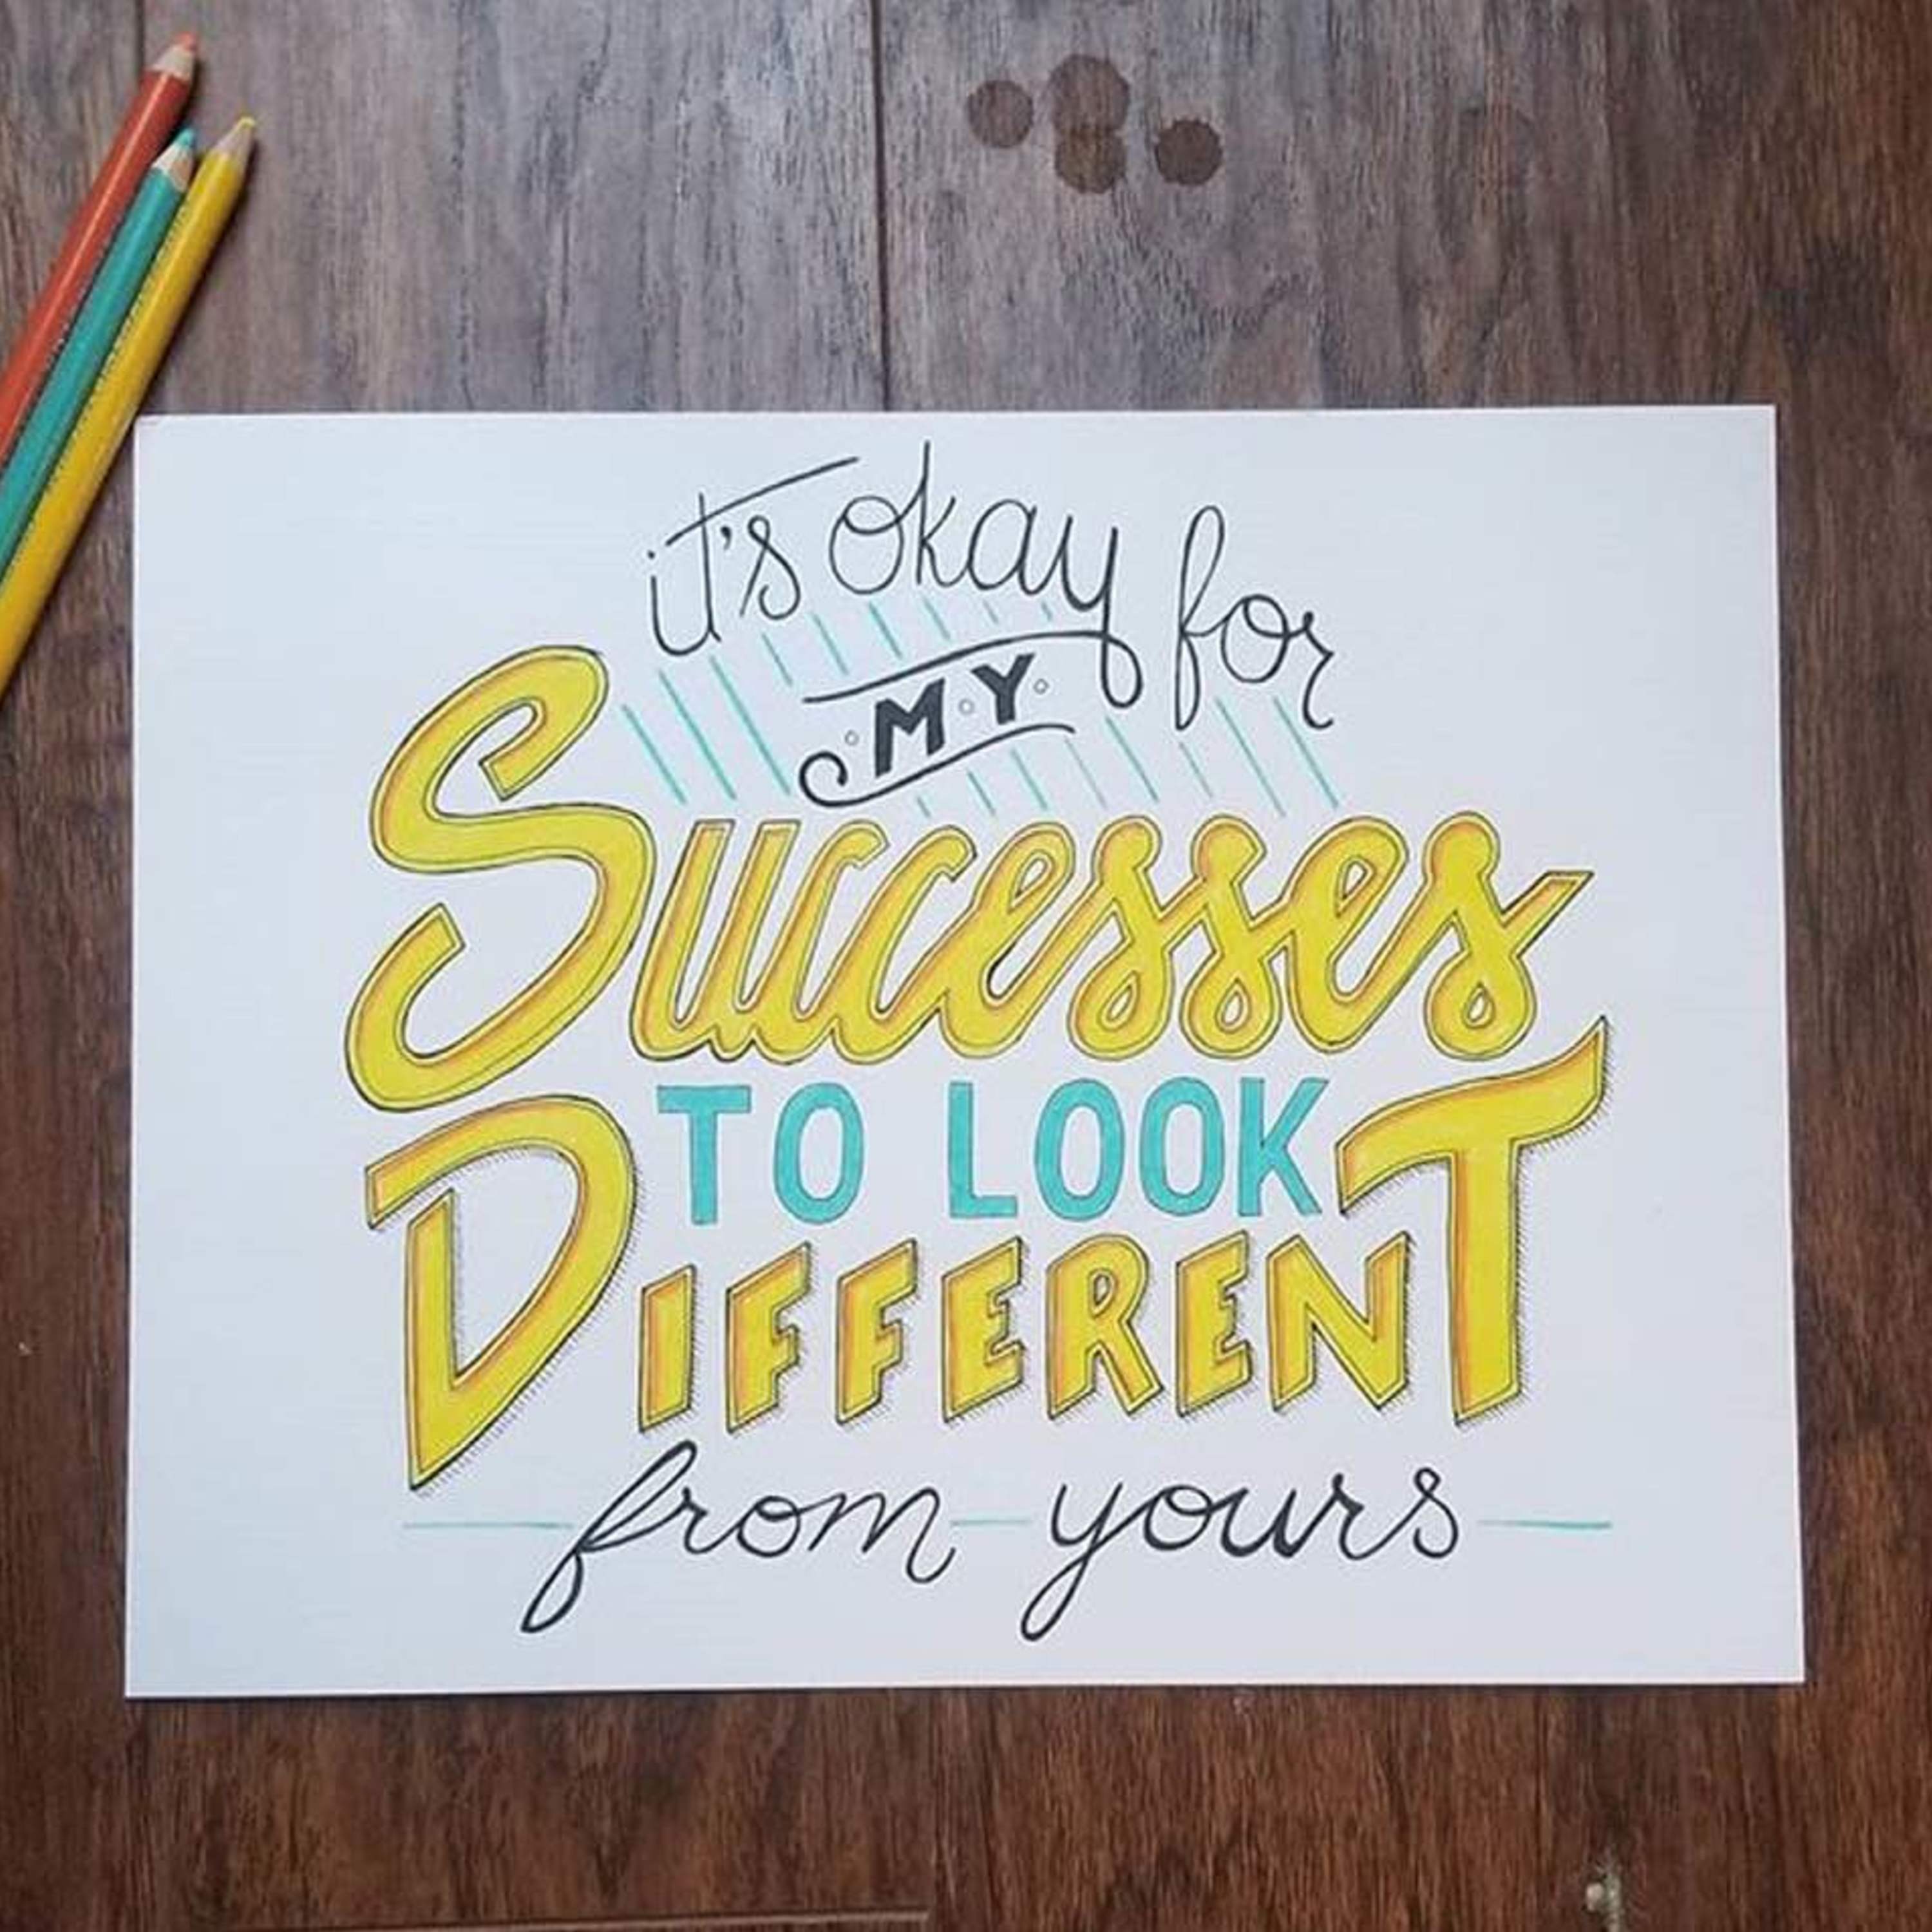 it's okay for
MY
Successes
TO LOOK
DIFFERENT
from yours